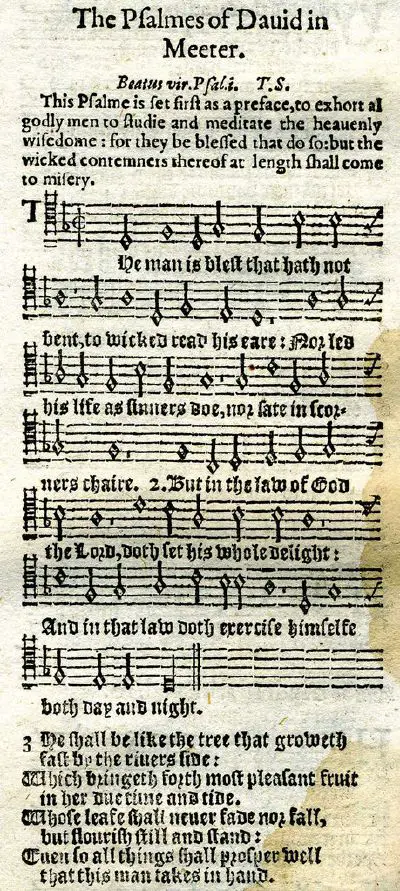 The Pſalmes of Dauid in
Meeter.
Beatus vir. Pſal. i. T. S.
This Pſalme is ſet firſt as a preface, to exhort al
godly men to ſtudie and meditate the heauenly
wiſedome : for they be bleſſed that do ſo: but the
wicked contemners thereof at length ſhall come
to miſery.
THe man is bleſt that hath not
bent, to wicked read his eare : Nor led
his life as ſinners doe, nor ſate in ſcor-
ners chaire. 2. But in the law of God
the Lord, doth ſet his whole delight :
And in that law doth exerciſe himſelfe
both day and night.
3 He ſhall be like the tree that groweth
faſt by the riuers ſide :
Which bringeth forth moſt pleaſant fruit
in her due time and tide.
Whoſe leafe ſhall neuer fade nor fall,
but flouriſh ſtill and ſtand :
Euen ſo all things ſhall proſper well
that this man takes in hand.